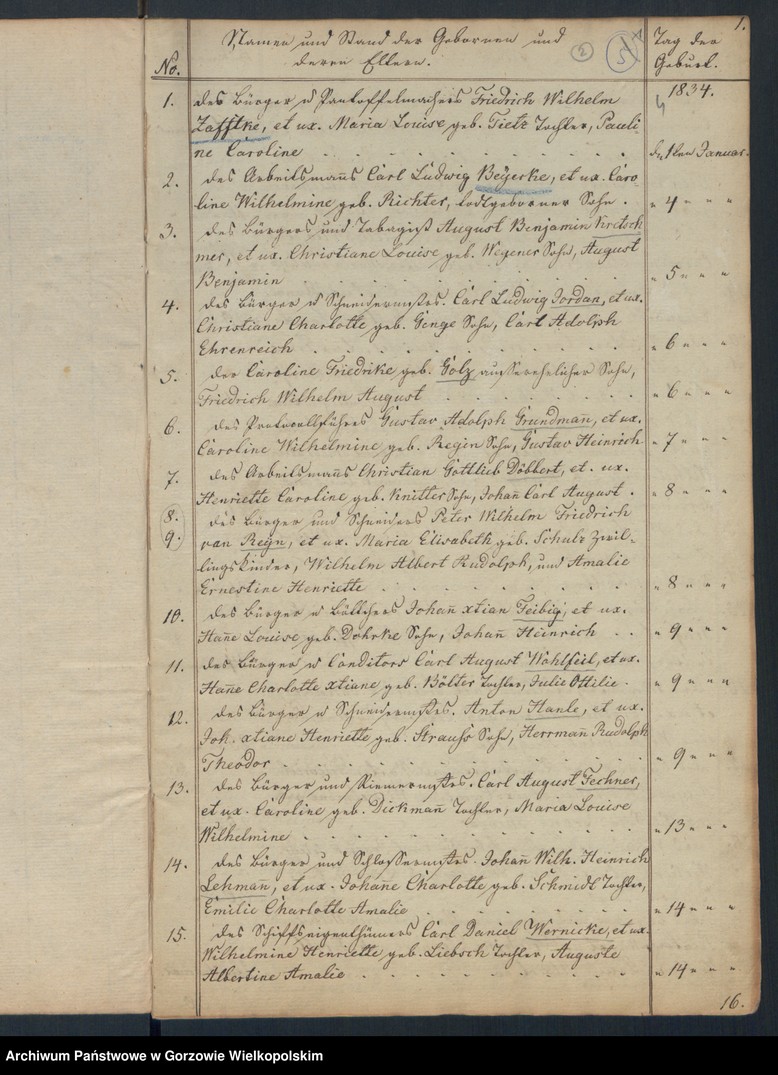 1.
Namen und Stand der Gebornen und
deren Eltern.
2
5
Tag der
Geburt.
No.
1834.
1. des Bürger u Pantoffelmachers Friedrich Wilhelm
Zafftke, et ux. Maria Louise geb. Tietz Tochter, Pauli-
ne Caroline den 1ten Januar.
2. des Arbeitsmañs Carl Ludwig Beyerke, et ux. Caro-
line Wilhelmine geb. Richter, todtgeborner Sohn. " 4 " " "
3. des Bürgers und Tabagist August Benjamin Kretsch
mer, et ux. Christiane Louise geb. Wegener Sohn, August
Benjamin " 5 " " "
4. des Bürger u Schneidermstrs. Carl Ludwig Jordan, et ux.
Christiane Charlotte geb. Genge Sohn, Carl Adolph
Ehrenreich " 6 " " "
5. der Caroline Friedrike geb. Golz außerehelicher Sohn,
Friedrich Wilhelm August " 6 " " "
6. des Protocollführers Gustav Adolph Grundmañ, et ux.
Caroline Wilhelmine geb. Regin Sohn, Gustav Heinrich " 7 " " "
7. des Arbeitsmañs Christian Gottlieb Döbbert, et. ux.
Henriette Caroline geb. Knitter Sohn, Johañ Carl August. " 8 " " "
8. des Bürger und Schneiders Peter Wilhelm Friedrich
9. van Reijn, et ux. Maria Elisabeth geb. Schulz Zwil-
lingskinder, Wilhelm Albert Rudolph, und Amalie
Ernestine Henriette " 8 " " "
10. des Bürger u Böttchers Johañ xtian Feibig, et ux.
Hañe Louise geb. Dohrke Sohn, Johañ Heinrich " 9 " " "
11. des Bürger u Conditors Carl August Wohlfeil, et ux.
Hañe Charlotte xtiane geb. Bölter Tochter, Julie Ottilie. " 9 " " "
12. des Bürger u Schneidermstrs. Anton Hanle, et ux.
Joh. xtiane Henriette geb. Strauss Sohn, Herrmañ Rudolph
Theodor " 9 " " "
13. des Bürger und Riemermstrs. Carl August Fechner,
et ux. Caroline geb. Dickmañ Tochter, Maria Louise
Wilhelmine " 13 " " "
14. des Bürger und Schlossermstrs. Johañ Wilh. Heinrich
Lehmañ, et ux. Johañe Charlotte geb. Schmidt Tochter,
Emilie Charlotte Amalie " 14 " " "
15. des Schiffseigenthümers Carl Daniel Wernicke, et ux.
Wilhelmine Henriette geb. Liebsch Tochter, Auguste
Albertine Amalie " 14 " " "
16.
Archiwum Państwowe w Gorzowie Wielkopolskim